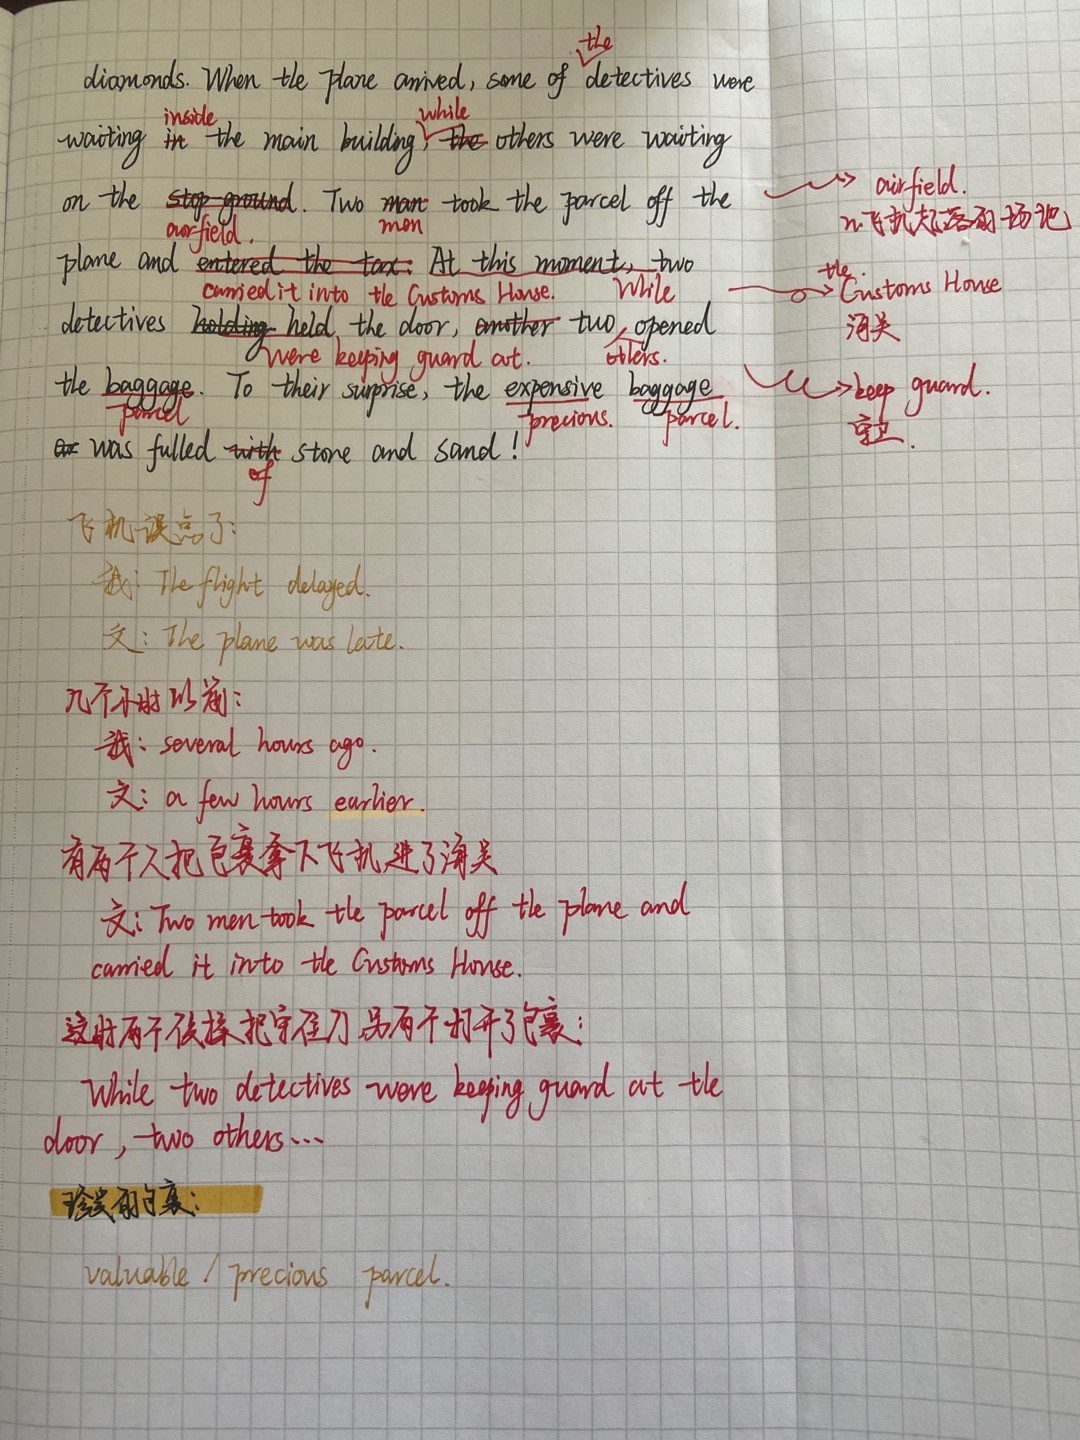 the
diamonds. When the plane arrived, some of detectives were
inside while
waiting in the main building, the others were waiting
on the stop ground. Two man took the parcel off the
airfield. men
airfield.
n.飞机起落的场地
plane and entered the tax. At this moment, two
carried it into the Customs House. While
the
Customs House
海关
detectives holding held the door, another two opened
were keeping guard at. others.
the baggage. To their surprise, the expensive baggage
parcel precious. parcel.
keep guard.
was fulled with stone and sand!
of
飞机误点了:
我: The flight delayed.
文: The plane was late.
几个小时以前:
我: several hours ago.
文: a few hours earlier.
有两个人把包裹拿下飞机进了海关
文: Two men took the parcel off the plane and
carried it into the Customs House.
这时两个侦探把守住门另两个打开了包裹:
While two detectives were keeping guard at the
door, two others...
珍贵的包裹:
valuable / precious parcel.